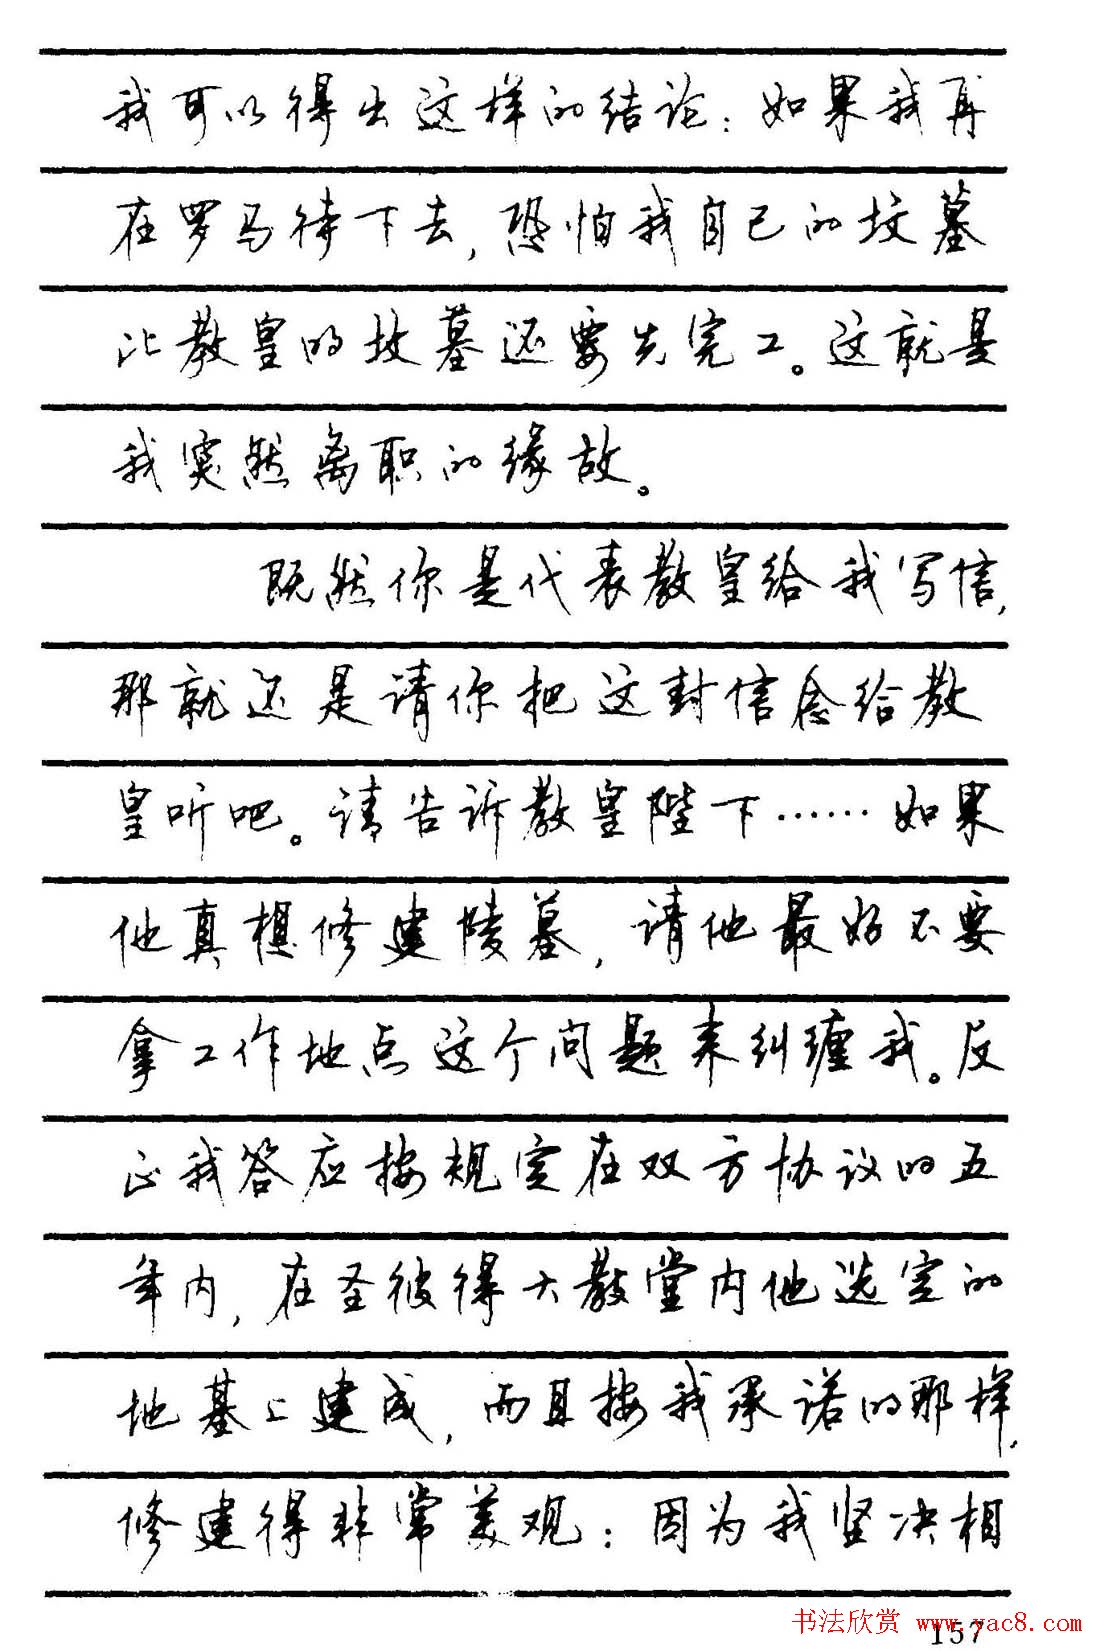 我可以得出这样的结论：如果我再
在罗马待下去，恐怕我自己的坟墓
比教皇的坟墓还要先完工。这就是
我突然离职的缘故。
既然你是代表教皇给我写信，
那就还是请你把这封信念给教
皇听吧。请告诉教皇陛下……如果
他真想修建陵墓，请他最好不要
拿工作地点这个问题来纠缠我。反
正我答应按规定在双方协议的五
年内，在圣彼得大教堂内他选定的
地基上建成，而且按我承诺的那样，
修建得非常美观：因为我坚决相
书法欣赏 www.yac8.com
157